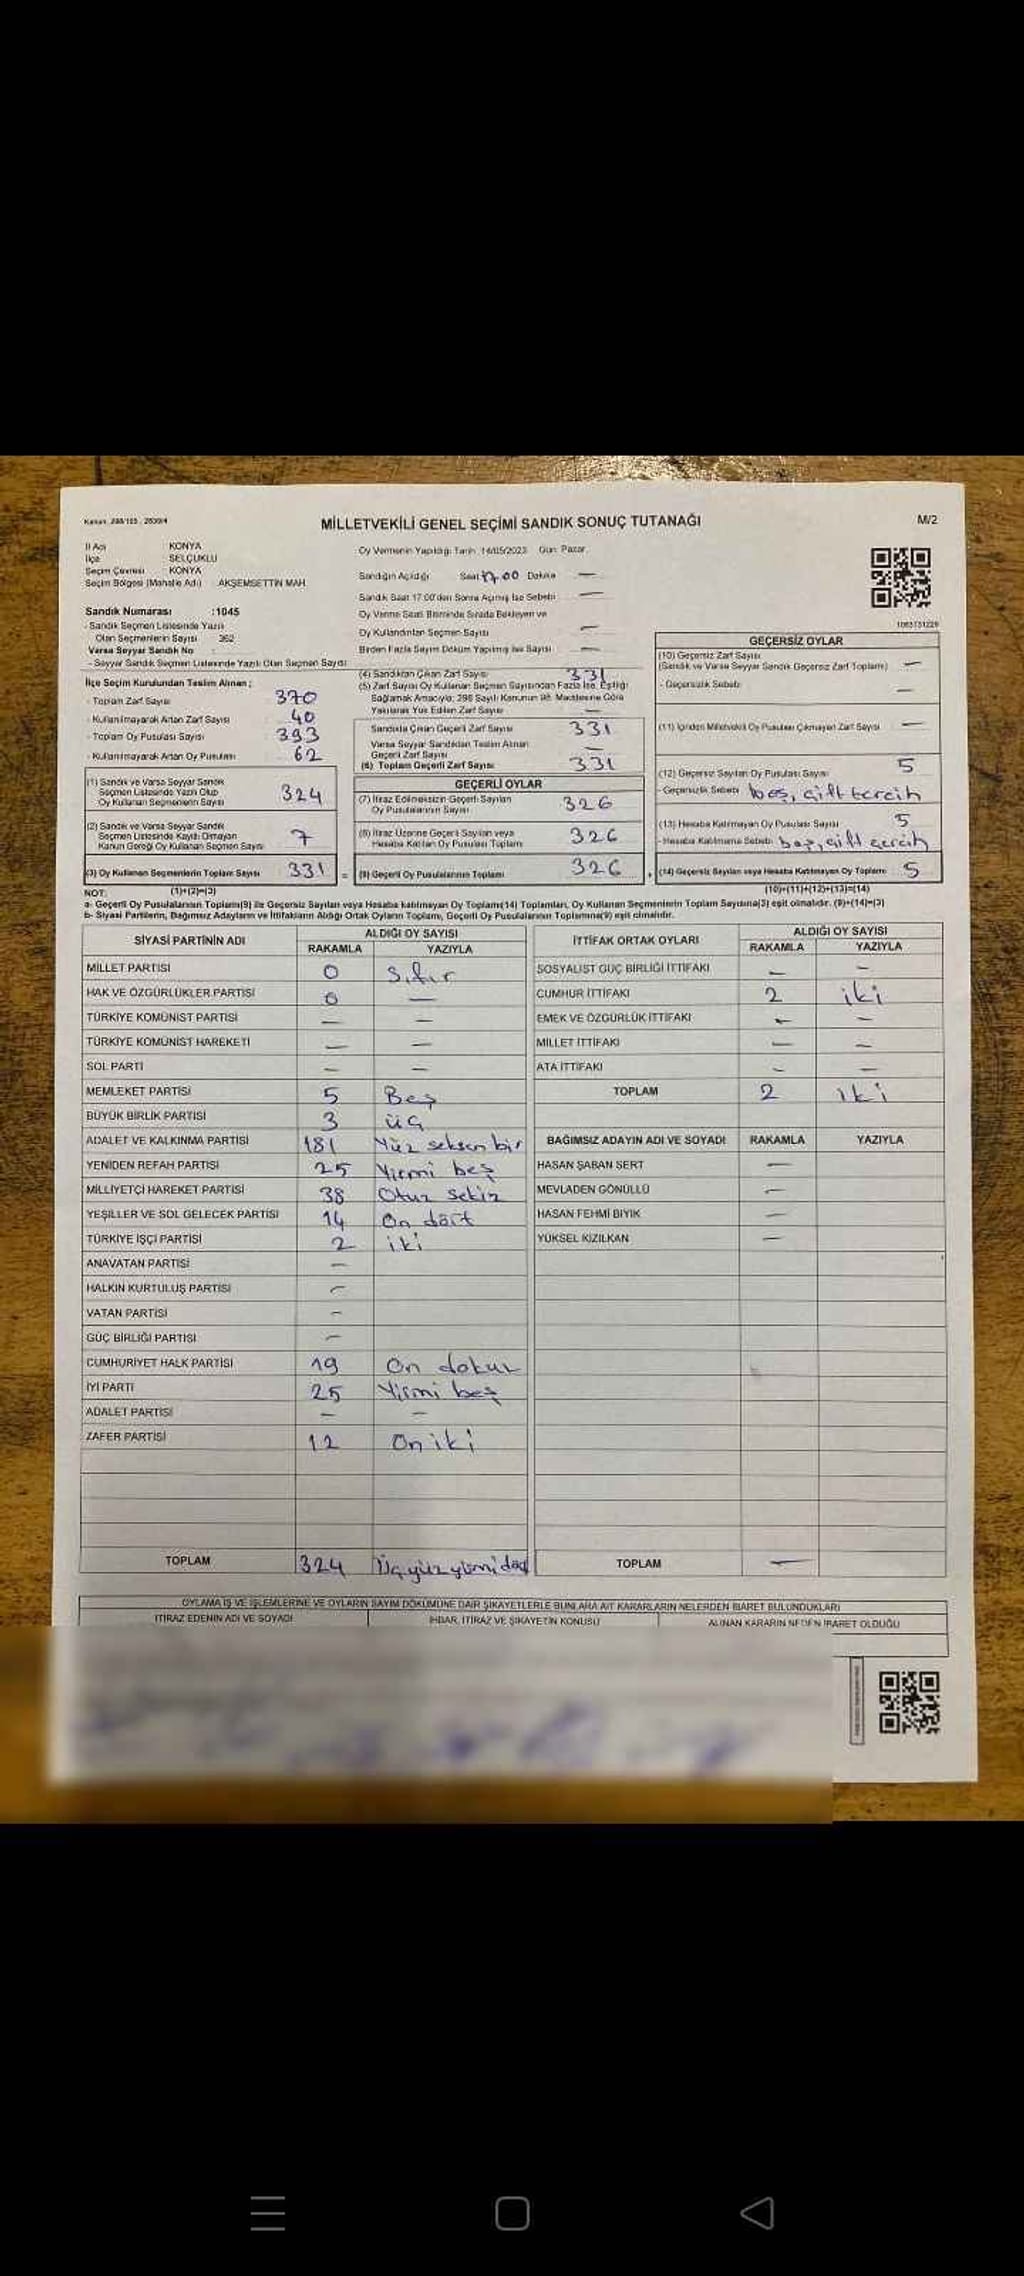 Kanun. 298/105 , 2839/4
MİLLETVEKİLİ GENEL SEÇİMİ SANDIK SONUÇ TUTANAĞI
M/2
İl Adı : KONYA
İlçe : SELÇUKLU
Seçim Çevresi : KONYA
Seçim Bölgesi (Mahalle Adı) : AKŞEMSETTİN MAH.
Sandık Numarası :1045
- Sandık Seçmen Listesinde Yazılı
Olan Seçmenlerin Sayısı : 362
Varsa Seyyar Sandık No :
- Seyyar Sandık Seçmen Listesinde Yazılı Olan Seçmen Sayısı:
İlçe Seçim Kurulundan Teslim Alınan ;
- Toplam Zarf Sayısı 370
- Kullanılmayarak Artan Zarf Sayısı 40
- Toplam Oy Pusulası Sayısı 393
- Kullanılmayarak Artan Oy Pusulası 62
(1) Sandık ve Varsa Seyyar Sandık
Seçmen Listesinde Yazılı Olup
Oy Kullanan Seçmenlerin Sayısı 324
(2) Sandık ve Varsa Seyyar Sandık
Seçmen Listesinde Kayıtlı Olmayan
Kanun Gereği Oy Kullanan Seçmen Sayısı 7
(3) Oy Kullanan Seçmenlerin Toplam Sayısı 331 =
Oy Vermenin Yapıldığı Tarih: 14/05/2023 Gün: Pazar.
Sandığın Açıldığı Saat 17.00 Dakika —
Sandık Saat 17.00'den Sonra Açılmış İse Sebebi —
Oy Verme Saati Bitiminde Sırada Bekleyen ve
Oy Kullandırılan Seçmen Sayısı —
Birden Fazla Sayım Döküm Yapılmış İse Sayısı —
(4) Sandıktan Çıkan Zarf Sayısı 331
(5) Zarf Sayısı Oy Kullanan Seçmen Sayısından Fazla İse, Eşitliği
Sağlamak Amacıyla; 298 Sayılı Kanunun 98. Maddesine Göre
Yakılarak Yok Edilen Zarf Sayısı —
Sandıkta Çıkan Geçerli Zarf Sayısı 331
Varsa Seyyar Sandıktan Teslim Alınan
Geçerli Zarf Sayısı —
(6) Toplam Geçerli Zarf Sayısı 331
GEÇERLİ OYLAR
(7) İtiraz Edilmeksizin Geçerli Sayılan
Oy Pusulalarının Sayısı 326
(8) İtiraz Üzerine Geçerli Sayılan veya
Hesaba Katılan Oy Pusulası Toplamı 326
(9) Geçerli Oy Pusulalarının Toplamı 326 +
1063131229
GEÇERSİZ OYLAR
(10) Geçersiz Zarf Sayısı
(Sandık ve Varsa Seyyar Sandık Geçersiz Zarf Toplamı) —
- Geçersizlik Sebebi: —
(11) İçinden Milletvekili Oy Pusulası Çıkmayan Zarf Sayısı —
(12) Geçersiz Sayılan Oy Pusulası Sayısı 5
- Geçersizlik Sebebi: boş, çift tercih
(13) Hesaba Katılmayan Oy Pusulası Sayısı 5
- Hesaba Katılmama Sebebi: boş, çift tercih
(14) Geçersiz Sayılan veya Hesaba Katılmayan Oy Toplamı 5
NOT: (1)+(2)=(3) (10)+(11)+(12)+(13)=(14)
a- Geçerli Oy Pusulalarının Toplamı(9) ile Geçersiz Sayılan veya Hesaba katılmayan Oy Toplamı(14) Toplamları, Oy Kullanan Seçmenlerin Toplam Sayısına(3) eşit olmalıdır. (9)+(14)=(3)
b- Siyasi Partilerin, Bağımsız Adayların ve İttifakların Aldığı Ortak Oyların Toplamı, Geçerli Oy Pusulalarının Toplamına(9) eşit olmalıdır.
SİYASİ PARTİNİN ADI ALDIĞI OY SAYISI
RAKAMLA YAZIYLA
MİLLET PARTİSİ 0 Sıfır
HAK VE ÖZGÜRLÜKLER PARTİSİ 0 —
TÜRKİYE KOMÜNİST PARTİSİ — —
TÜRKİYE KOMÜNİST HAREKETİ — —
SOL PARTİ — —
MEMLEKET PARTİSİ 5 Beş
BÜYÜK BİRLİK PARTİSİ 3 üç
ADALET VE KALKINMA PARTİSİ 181 Yüz seksen bir
YENİDEN REFAH PARTİSİ 25 Yirmi beş
MİLLİYETÇİ HAREKET PARTİSİ 38 Otuz sekiz
YEŞİLLER VE SOL GELECEK PARTİSİ 14 On dört
TÜRKİYE İŞÇİ PARTİSİ 2 iki
ANAVATAN PARTİSİ —
HALKIN KURTULUŞ PARTİSİ —
VATAN PARTİSİ —
GÜÇ BİRLİĞİ PARTİSİ —
CUMHURİYET HALK PARTİSİ 19 On dokuz
İYİ PARTİ 25 Yirmi beş
ADALET PARTİSİ — —
ZAFER PARTİSİ 12 On iki
TOPLAM 324 Üçyüzyirmidört
İTTİFAK ORTAK OYLARI ALDIĞI OY SAYISI
RAKAMLA YAZIYLA
SOSYALİST GÜÇ BİRLİĞİ İTTİFAKI — —
CUMHUR İTTİFAKI 2 iki
EMEK VE ÖZGÜRLÜK İTTİFAKI — —
MİLLET İTTİFAKI — —
ATA İTTİFAKI — —
TOPLAM 2 İki
BAĞIMSIZ ADAYIN ADI VE SOYADI RAKAMLA YAZIYLA
HASAN ŞABAN SERT —
MEVLADEN GÖNÜLLÜ —
HASAN FEHMİ BIYIK —
YÜKSEL KIZILKAN —
TOPLAM —
OYLAMA İŞ VE İŞLEMLERİNE VE OYLARIN SAYIM DÖKÜMÜNE DAİR ŞİKAYETLERLE BUNLARA AİT KARARLARIN NELERDEN İBARET BULUNDUKLARI
İTİRAZ EDENİN ADI VE SOYADI İHBAR, İTİRAZ VE ŞİKAYETİN KONUSU ALINAN KARARIN NEDEN İBARET OLDUĞU